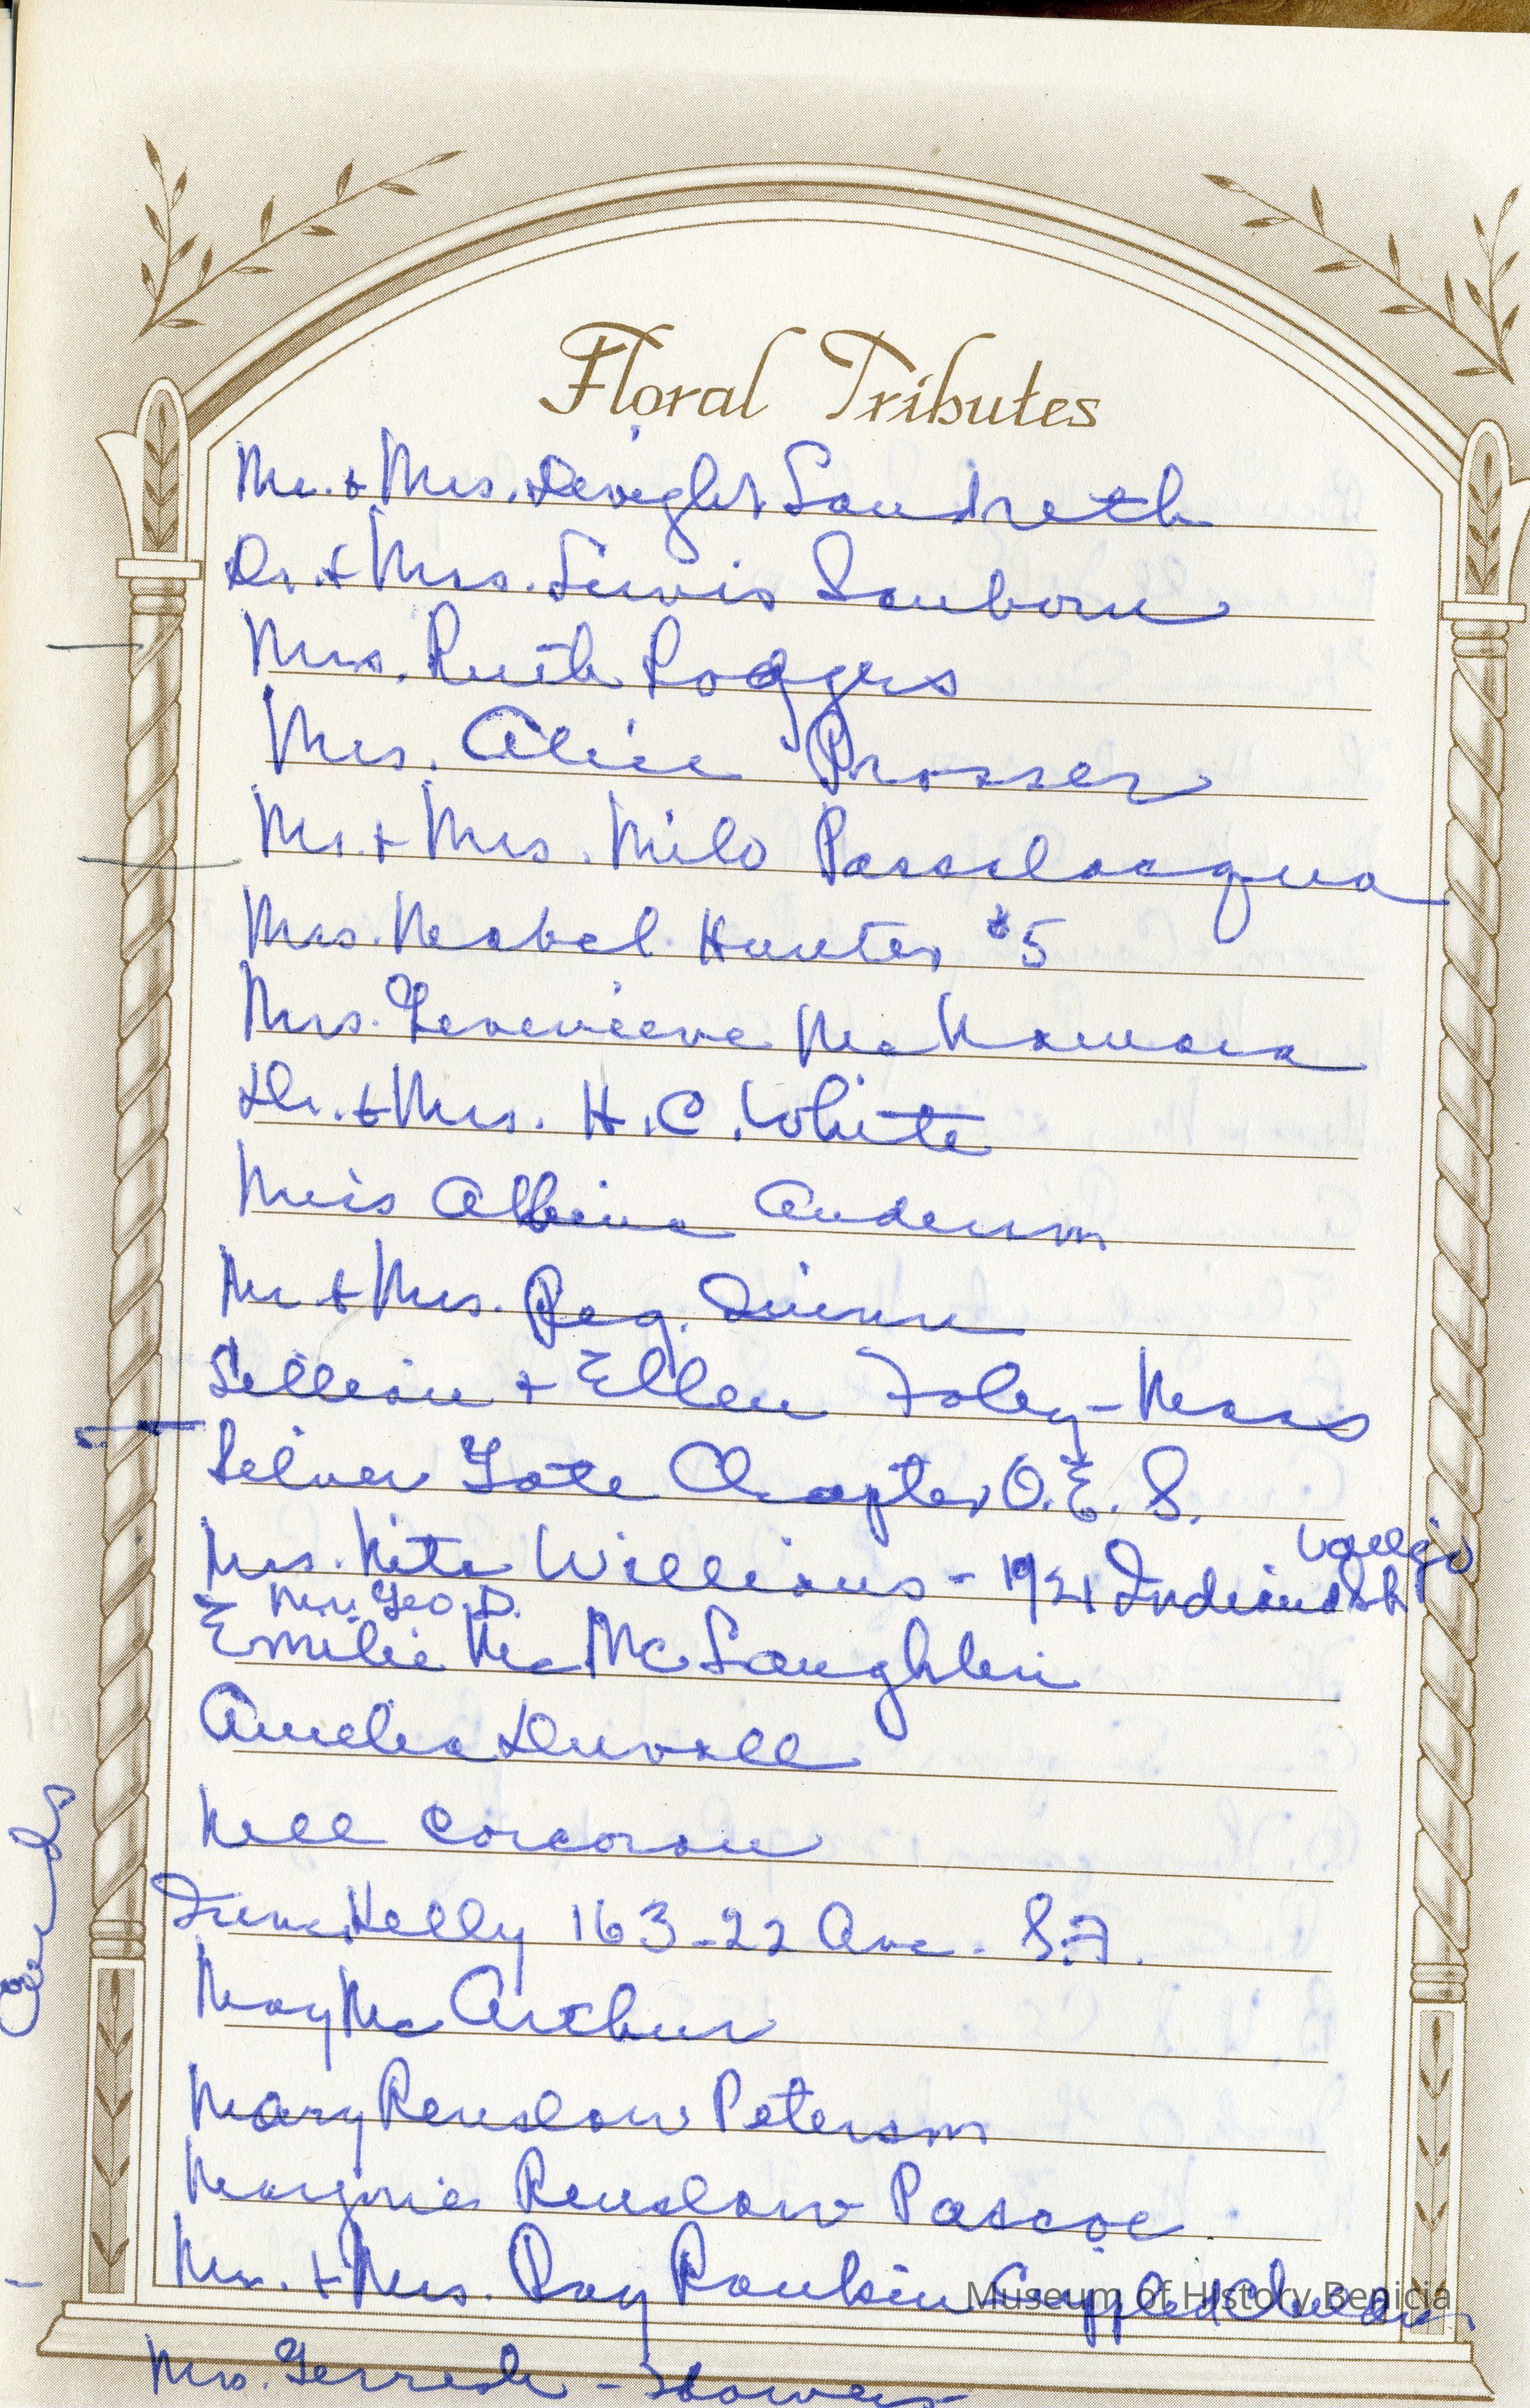 Floral Tributes
Mr. + Mrs. Dwight Landreth
Dr. + Mrs. Lewis Sanborn
Mrs. Ruth Rodgers
Mrs. Alice Prosser
Mr. + Mrs. Milo Passalacqua
Mrs. Mabel Hunter $5
Mrs. Genevieve McNamara
Dr. + Mrs. H.C. White
Miss Albina Anderson
Mr + Mrs. Reg. Quinn
Lillian + Ellen Foley - Mass
Silver Gate Chapter O.E.S.
Vallejo
Mrs. Nita Williams - 1921 Indiana St
Mrs. Geo. D.
Emilie Mc McLaughlin
Amelia Duvall
Nell Corcoran
June Kelly 163-22 Ave. S.F.
May McArthur
Mary Renslow Peterson
Marjorie Renslow Pascoe
Mr. + Mrs. Ray Rankin Crippled Children
Mrs. Gerrish - Flowers
Cards
Museum of History Benicia